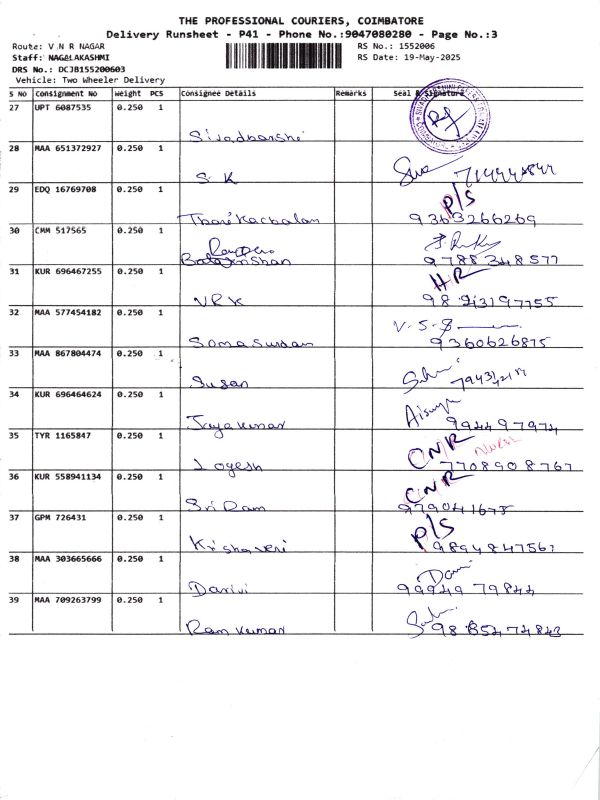 THE PROFESSIONAL COURIERS, COIMBATORE
Delivery Runsheet - P41 - Phone No.:9047080280 - Page No.:3
Route: V N R NAGAR
RS No.: 1552006
Staff: NAGALAKASHMI
RS Date: 19-May-2025
DRS No.: DCJB155200603
Vehicle: Two Wheeler Delivery
S No Consignment No Weight PCS Consignee Details Remarks Seal & Signature
27 UPT 6087535 0.250 1
Sivadharshi
28 MAA 651372927 0.250 1
S K
29 EDQ 16769708 0.250 1 P/S
9363266269
30 CMM 517565 0.250 1
9788348577
31 KUR 696467255 0.250 1 HR
VRK
32 MAA 577454182 0.250 1 V-S-S
Somasundan 9360626815
33 MAA 867804474 0.250 1
Susan
34 KUR 696464624 0.250 1
Jayakumar 994497974
35 TYR 1165847 0.250 1 CNR
Logesh 7708908767
36 KUR 558941134 0.250 1 CNR
Sri Ram
37 GPM 726431 0.250 1 P/S
9894847567
38 MAA 303665666 0.250 1
99949 79844
39 MAA 709263799 0.250 1
Ram kumar